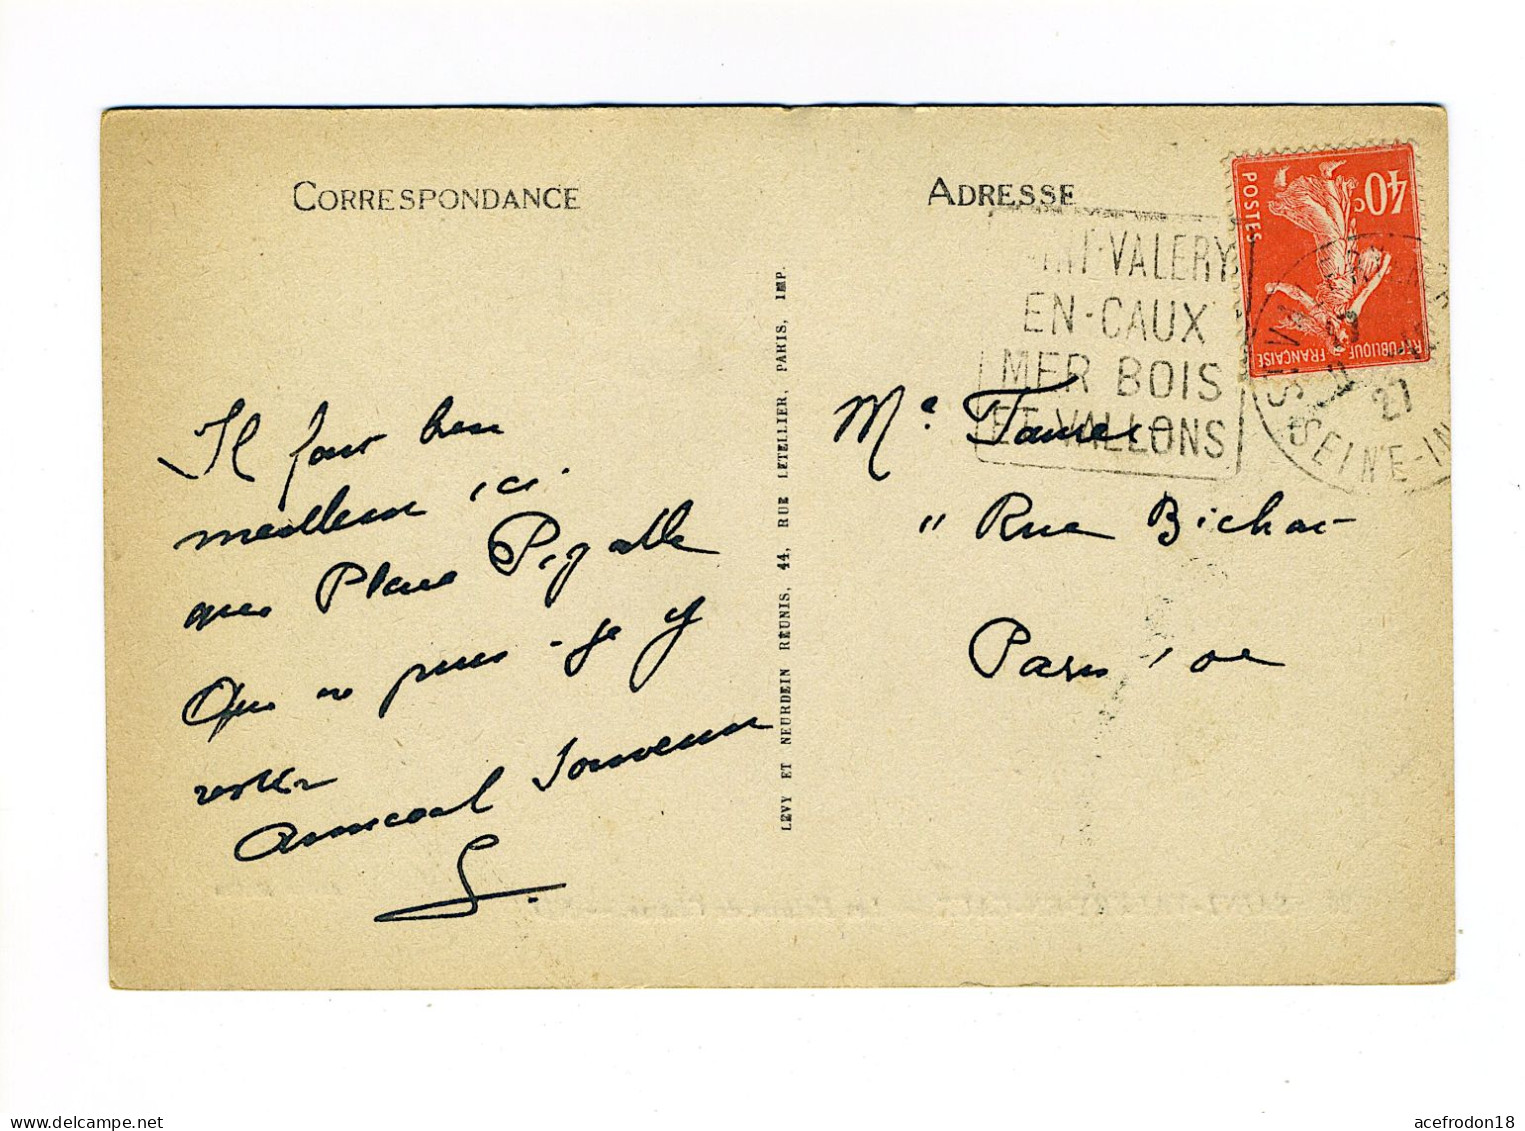 CORRESPONDANCE
Il fait bien
meilleur ici
que Place Pigalle
Que ne puis-je y
rester
Amical Souvenir
LEVY ET NEURDEIN RÉUNIS, 44, RUE LETELLIER, PARIS, IMP.
ADRESSE
VALERY
EN-CAUX
MER BOIS
ET VALLONS
40c
POSTES
REPUBLIQUE FRANÇAISE
27
SEINE-IN
Me
11 Rue Bichat
Paris 10e
SAINT-VALERY-EN-CAUX
acefrodon18